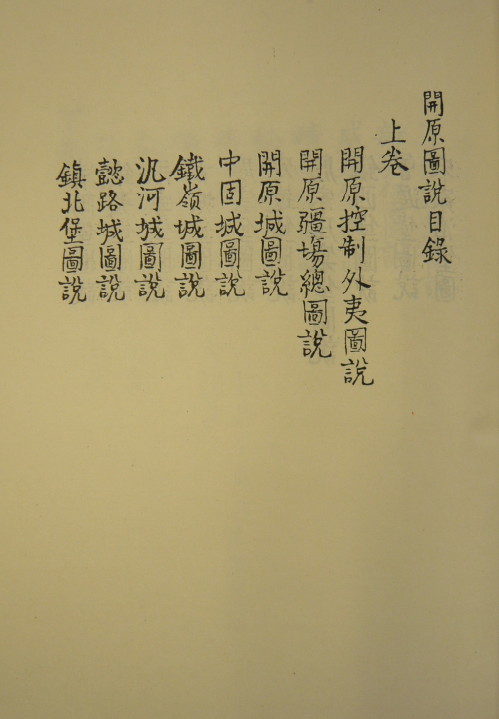 開原圖說目錄
上卷
開原控制外夷圖說
開原疆場總圖說
開原城圖說
中固城圖說
鐵嶺城圖說
汎河城圖說
懿路城圖說
鎮北堡圖說